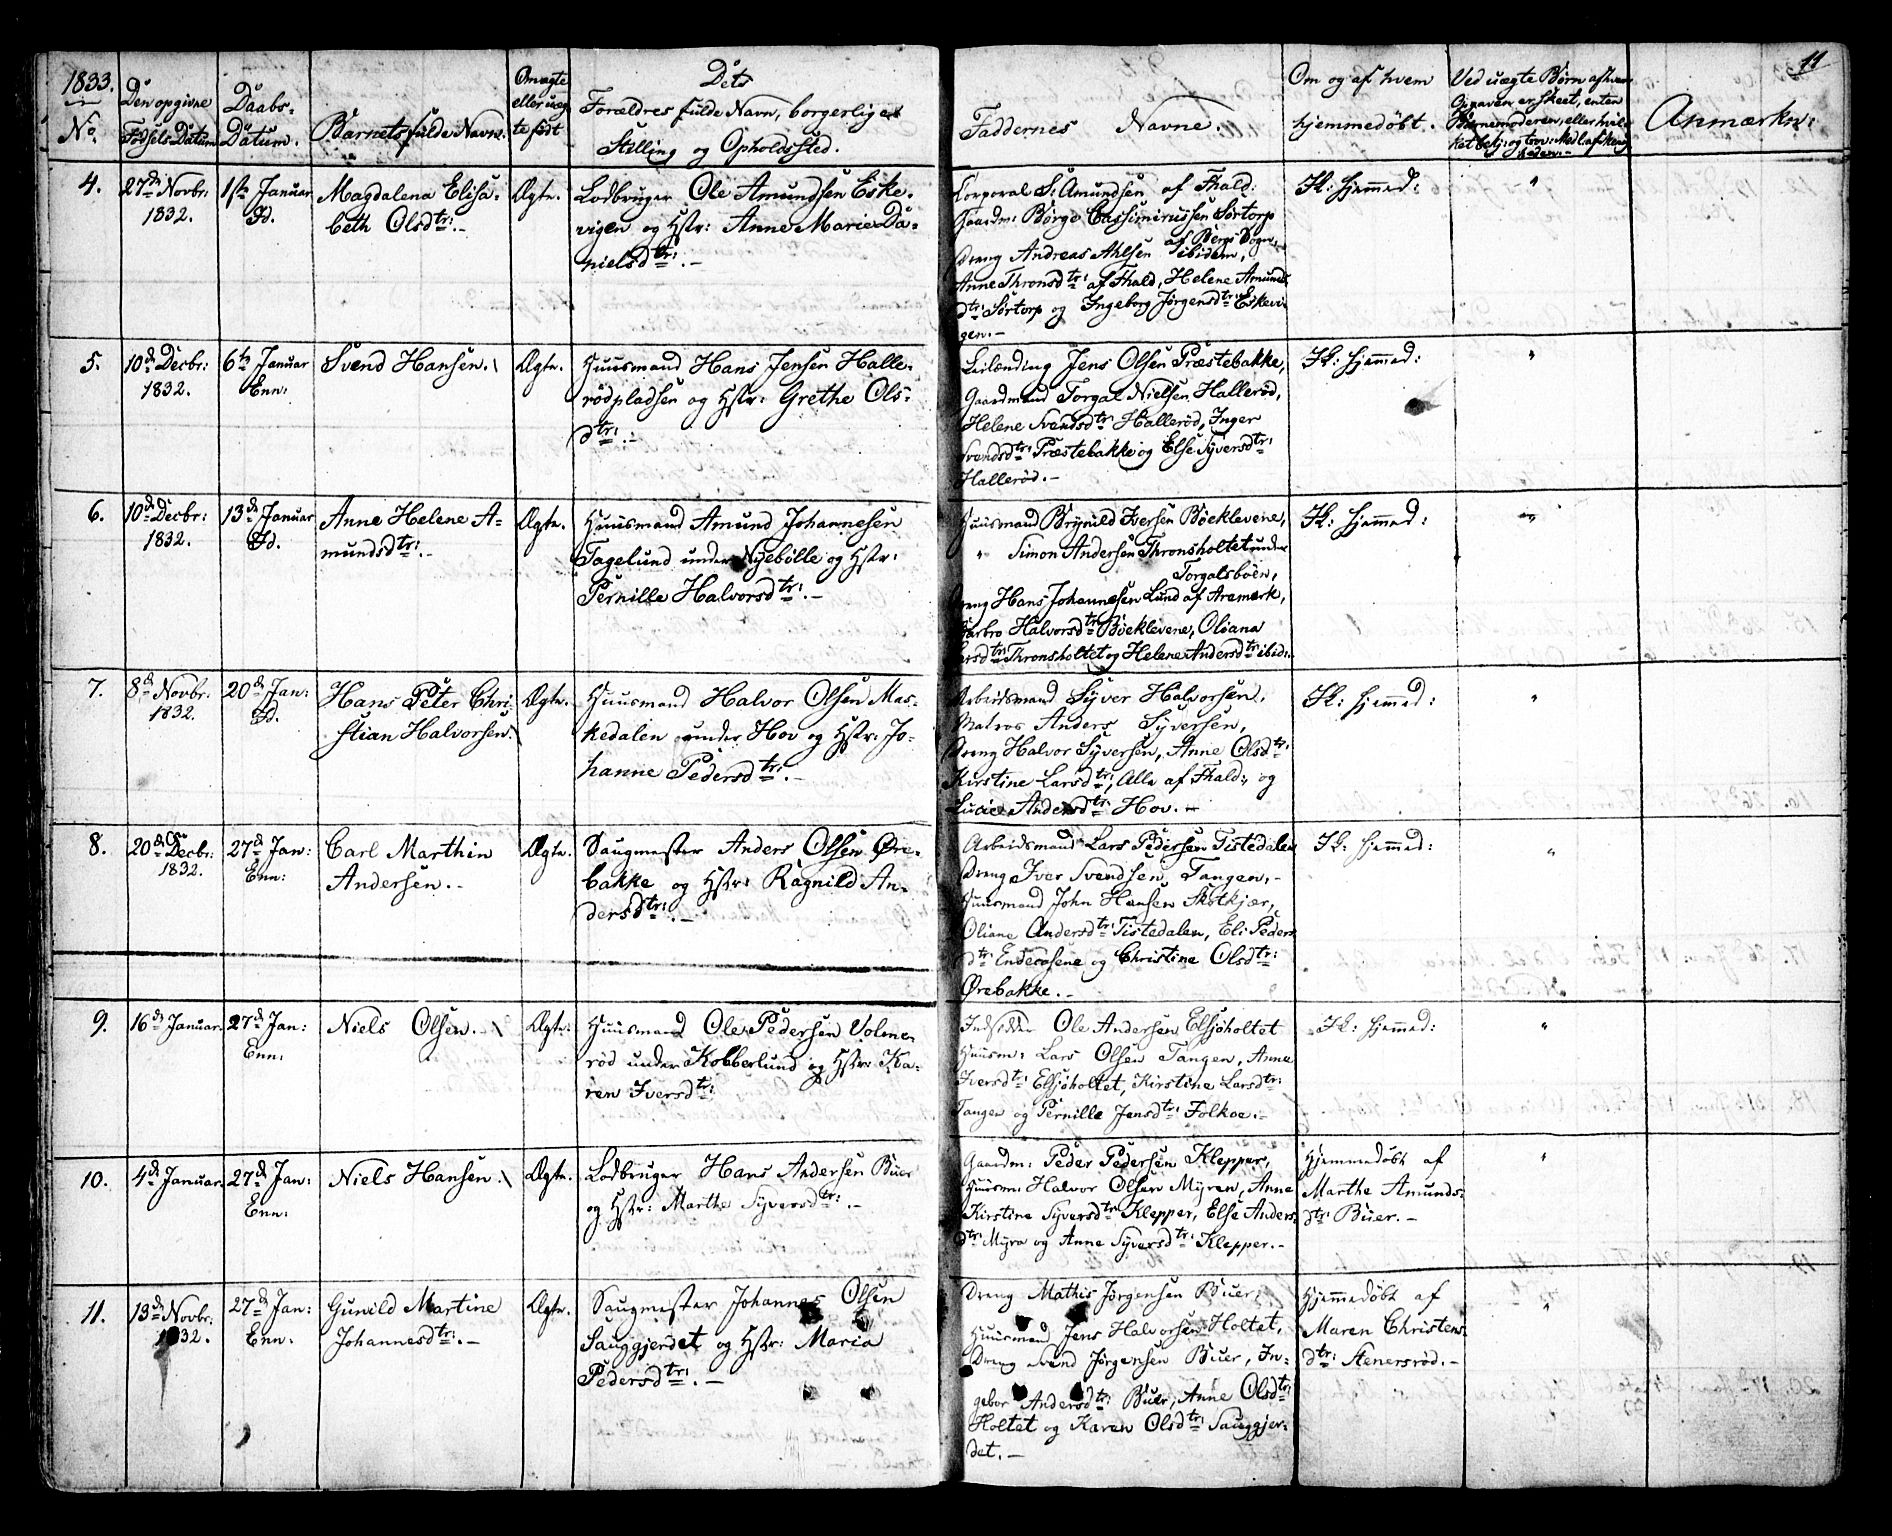 11
1833.
No.
Den opgivne
Fødsels-Datum
Daabs-
Datum.
Barnets fulde Navn.
Om ægte
eller uæg-
te født
Dets
Forældres fulde Navn, borgerlige
Stilling og Opholdssted.
Faddernes Navne.
Om og af hvem
hjemmedøbt.
Ved uægte Børn af hvem
Opgaven er skeet, enten
Barnemoderen, eller hvil-
Anmærkn:
4.
27de Novbr:
1832.
1ste Januar
Fd.
Magdalena Elisa-
beth Olsdtr: -
Ægte.
Lodbruger Ole Amundsen Eske-
vigen og Hstr: Anne Marie Da-
nielsdtr: -
Corporal S: Amundsen af Fhald:
Gaardm: Børge Cassimirussen Sørtorp
af Bergs Sogn,
Dreng Andreas Ahlsen ibidem,
Anne Thronsdtr: af Fhald, Helene Amunds
dtr: Sørtorp og Ingeborg Jørgensdtr: Eskevi-
gen. -
Ik: hjemmed:
"
5.
10de Decbr:
1832.
6te Januar
Enn:
Svend Hansen.
Ægte.
Huusmand Hans Jensen Halle-
rødpladsen og Hstr: Grethe Ols-
dtr: -
Leilænding Jens Olsen Præstebakke,
Gaardmand Torgal Nielsen Hallerød,
Helene Svendsdtr: Hallerød, Inger
Svendsdtr: Præstebakke og Else Syversdtr:
Hallerød. -
Ik: hjemmed:
"
6.
10de Decbr:
1832.
13de Januar
Fd.
Anne Helene A-
mundsdtr: -
Ægte.
Huusmand Amund Johannesen
Fagelund under Nyebølle og Hstr:
Pernille Halvorsdtr: -
Huusmand Brynild Iversen Bøeklevene,
" Simon Andersen Thronsholtet under
Torgalsbøen,
Dreng Hans Johannesen Lund af Aremark,
Barbro Halvorsdtr: Bøeklevene, Oliana
Larsdtr: Thronsholtet og Helene Andersdtr: ibid: -
Ik: hjemmed:
"
7.
8de Novbr:
1832.
20de Jan:
Fd.
Hans Peter Chri-
stian Halvorsen.
Ægte.
Huusmand Halvor Olsen Mas-
kedalen under Hov og Hstr: Jo-
hanne Pedersdtr: -
Arbeidsmand Syver Halvorsen,
Matros Anders Syversen,
Dreng Halvor Syversen, Anne Olsdtr:
Kirstine Larsdtr:, Alle af Fhald:, og
Lucie Andersdtr: Hov. -
Ik: hjemmed:
"
8.
20de Decbr:
1832.
27de Jan:
Enn:
Carl Marthin
Andersen. -
Ægte.
Saugmester Anders Olsen Øre-
bakke og Hstr: Ragnild An-
dersdtr: -
Arbeidsmand Lars Pedersen Tistedalen
Dreng Iver Svendsen Tangen, -
Huusmand John Hansen Skotkjær,
Oliane Andersdtr: Tistedalen, Eli Peders
dtr: Enderaasene og Christine Olsdtr:
Ørebakke. -
Ik: hjemmed:
"
9.
16de Januar.
27de Jan:
Enn:
Niels Olsen. -
Ægte.
Huusmand Ole Pedersen Volme-
rød under Kobberlund og Hstr: Ka-
ren Iversdtr:
Indsidder Ole Andersen Elsjøholtet
Huusm: Lars Olsen Tangen, Anne
Iversdtr: Elsjøholtet, Kirstine Larsdtr:
Tangen og Pernille Jensdtr: Folkoe. -
Ik: hjemmed:
"
10.
4de Januar.
27de Jan:
Enn:
Niels Hansen.
Ægte.
Lodbruger Hans Andersen Buer
og Hstr: Marthe Syversdtr: -
Gaardm: Peder Pedersen Klepper,
Huusm: Halvor Olsen Myren, Anne
Kirstine Syversdtr: Klepper, Else Anders-
dtr: Myra og Anne Syversdtr: Klepper. -
Hjemmedøbt af
Marthe Amunds-
dtr: Buer. -
"
11.
13de Novbr:
1832.
27de Jan:
Enn:
Gunild Martine
Johannesdtr: -
Ægte.
Saugmester Johannes Olsen
Sauggjerdet og Hstr: Maria
Pedersdtr: -
Dreng Mathis Jørgensen Buer,
Huusmand Jens Halvorsen Holtet,
Dreng Svend Jørgensen Buer, In-
gebor Andersdtr: Buer, Anne Olsdtr:
Holtet og Karen Olsdtr: Sauggjer-
det. -
Hjemmedøbt af
Maren Christens-
dtr: Stenersrød. -
"